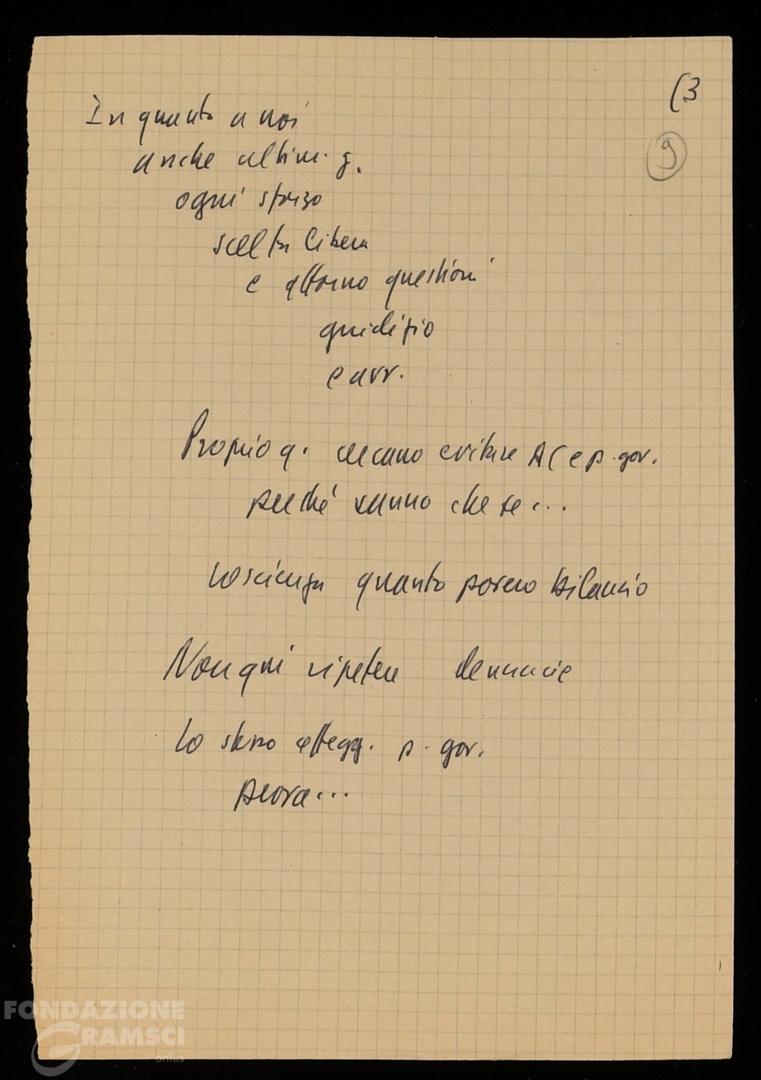 (3
9
In quanto a noi
anche ultim. g.
ogni sforzo
scelta libera
e attorno questioni
giudizio
e avv.
Proprio q. cercano evitare AC e p. gov.
perché sanno che se...
coscienza quanto povero bilancio
Non qui ripetere denuncie
Lo stesso attegg. p. gov.
prova...
FONDAZIONE
GRAMSCI
onlus